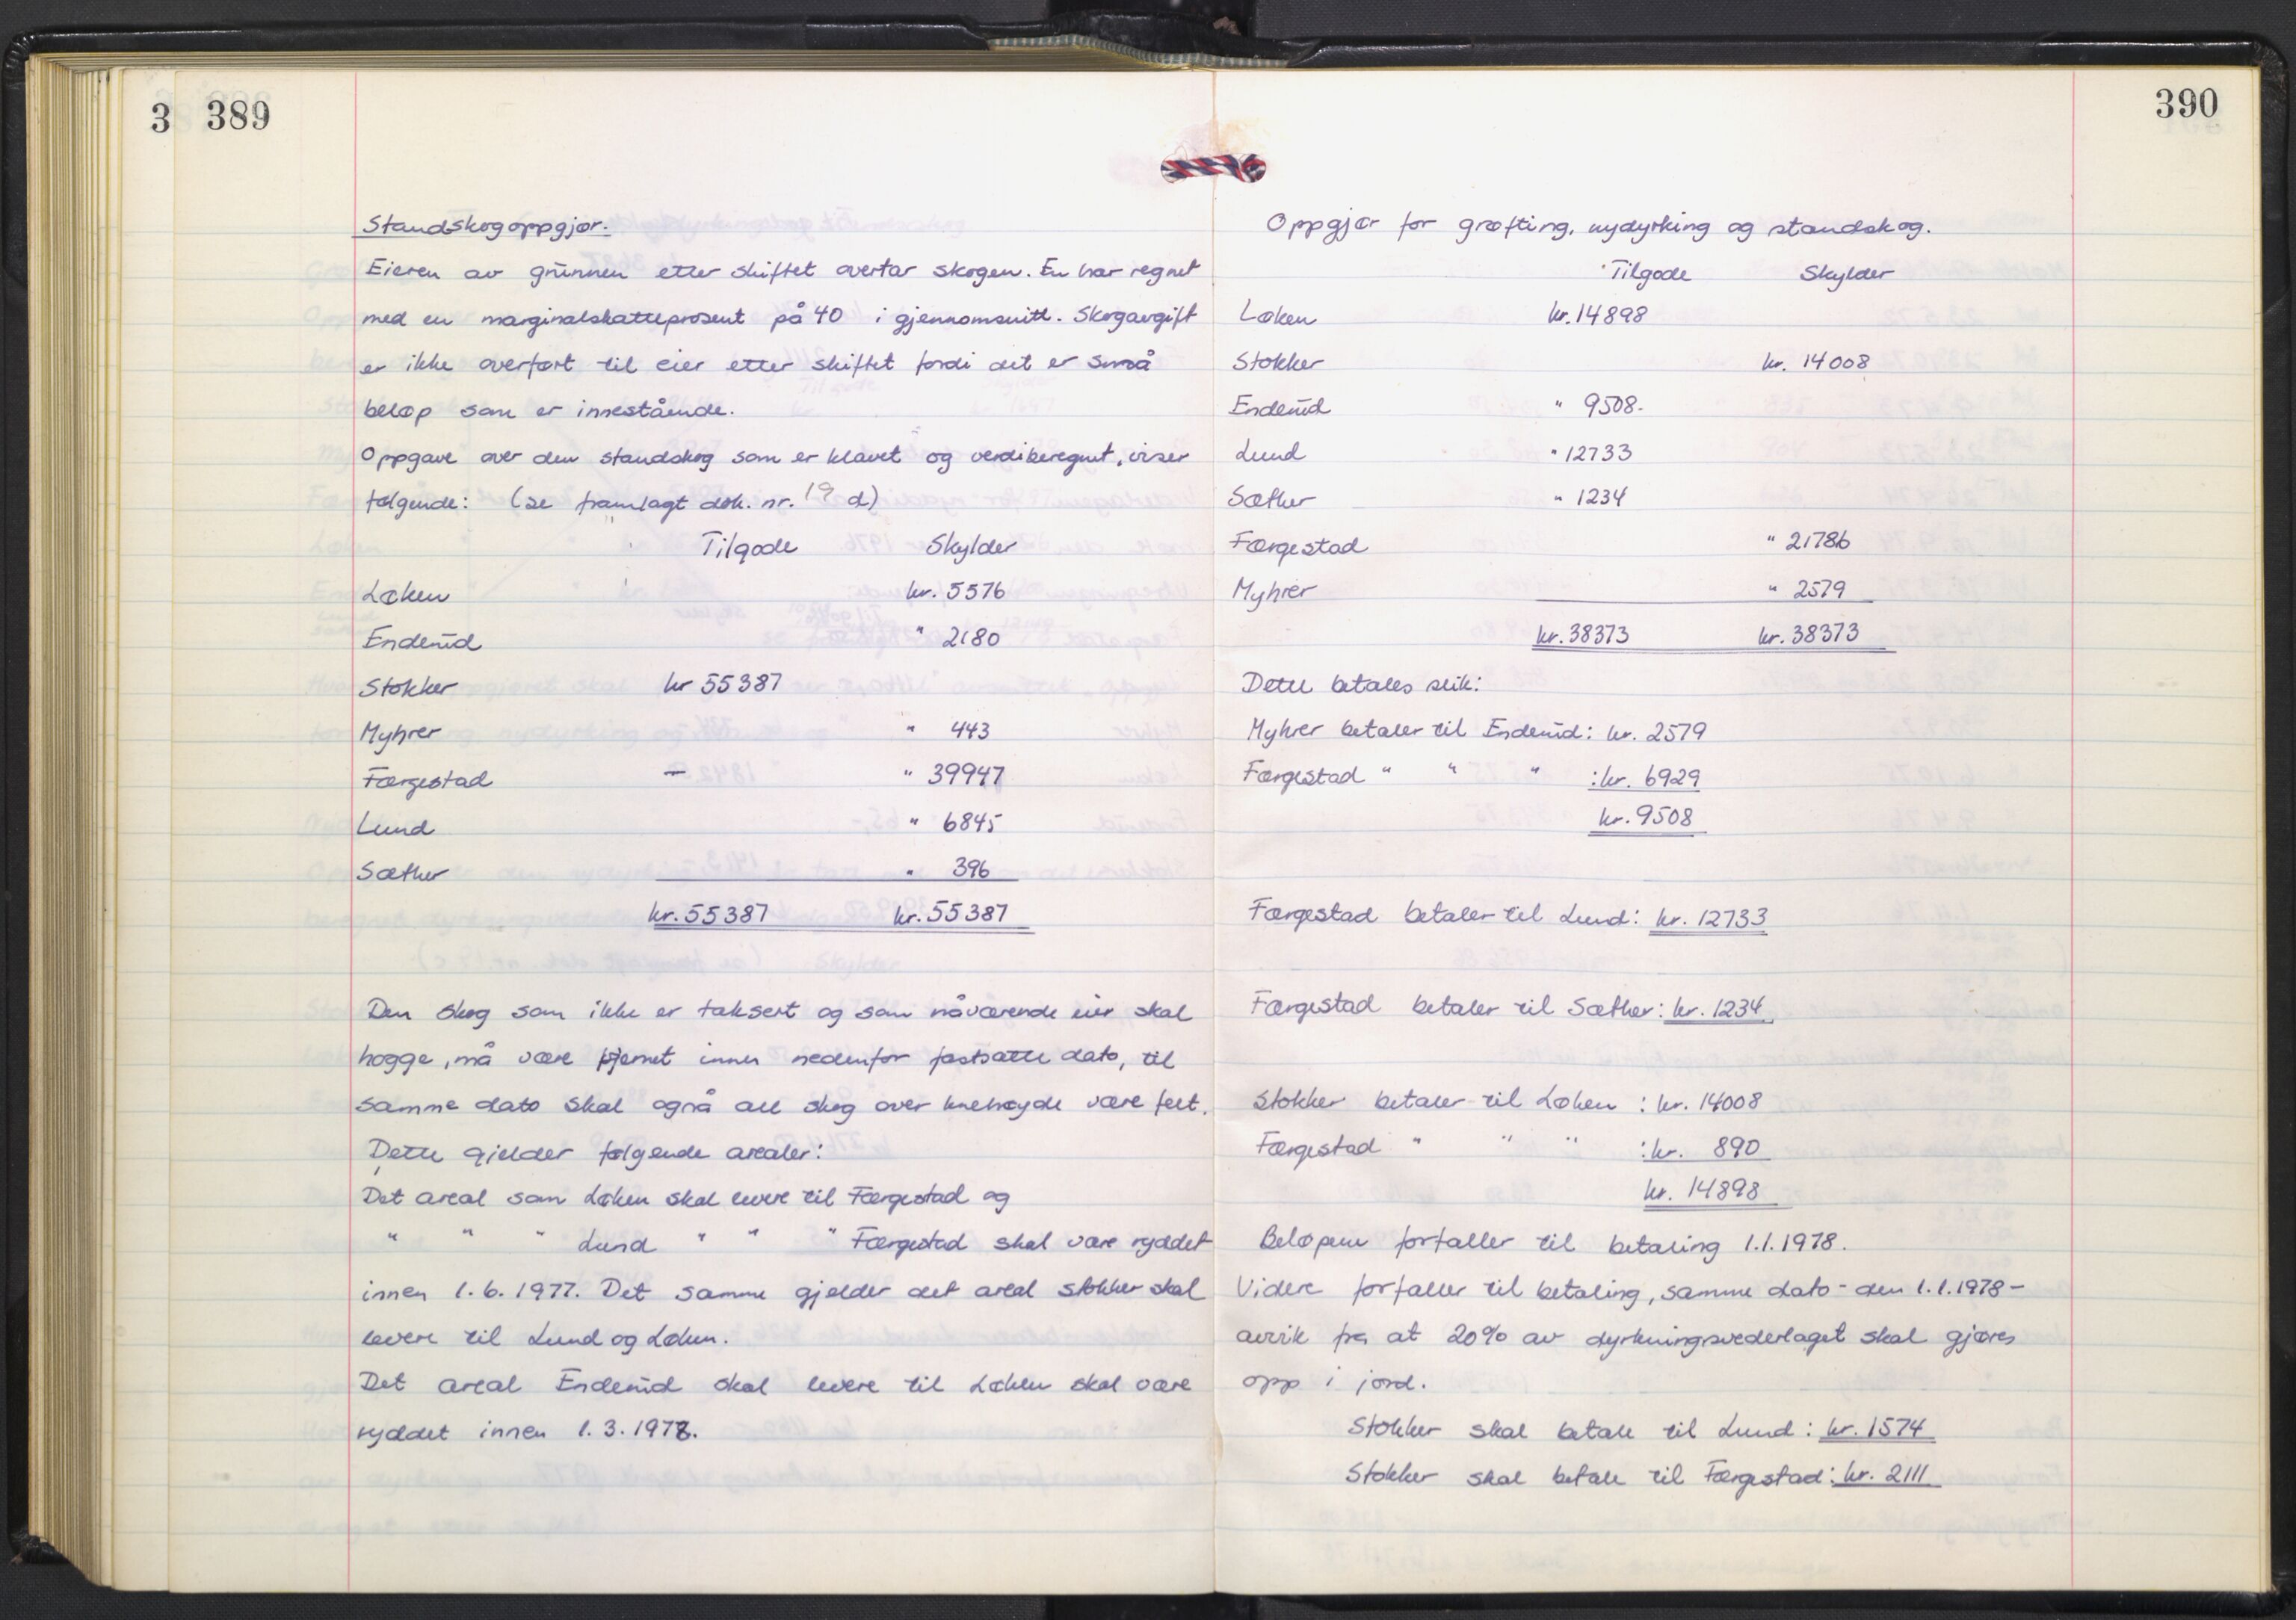 3 389
Standskogoppgjør.
Eieren av grunnen etter skiftet overtar skogen. En har regnet
med en marginalskatteprosent på 40 i gjennomsnitt. Skogavgift
er ikke overført til eier etter skiftet fordi det er små
beløp som er innestående.
Oppgave over den standskog som er klavet og verdiberegnet, viser
følgende: (se framlagt dok. nr. 19 d)
Tilgode Skylder
Løken kr. 5576
Enderud " 2180
Stokker kr 55387
Myhrer " 443
Færgestad — " 39947
Lund " 6845
Sæther " 396
kr. 55387 kr. 55387
Den skog som ikke er taksert og som nåværende eier skal
hogge, må være fjernet innen nedenfor fastsatte dato, til
samme dato skal også all skog over knehøyde være felt.
Dette gjelder følgende arealer:
Det areal som Løken skal levere til Færgestad og
" " " Lund " " " Færgestad skal være ryddet
innen 1.6.1977. Det samme gjelder det areal Stokker skal
levere til Lund og Løken.
Det areal Enderud skal levere til Løken skal være
ryddet innen 1.3.1978.
390
Oppgjør for grøfting, nydyrking og standskog.
Tilgode Skylder
Løken kr. 14898
Stokker kr. 14008
Enderud " 9508.
Lund " 12733
Sæther " 1234
Færgestad " 21786
Myhrer " 2579
kr. 38373 kr. 38373
Dette betales slik:
Myhrer betaler til Enderud: kr. 2579
Færgestad " " " : kr. 6929
kr. 9508
Færgestad betaler til Lund: kr. 12733
Færgestad betaler til Sæther: kr. 1234
Stokker betaler til Løken : kr. 14008
Færgestad " " " : kr. 890
kr. 14898
Beløpene forfaller til betaling 1.1.1978.
Videre forfaller til betaling, samme dato - den 1.1.1978 -
avvik fra at 20% av dyrkningsvederlaget skal gjøres
opp i jord.
Stokker skal betale til Lund: kr. 1574
Stokker skal betale til Færgestad: kr. 2111